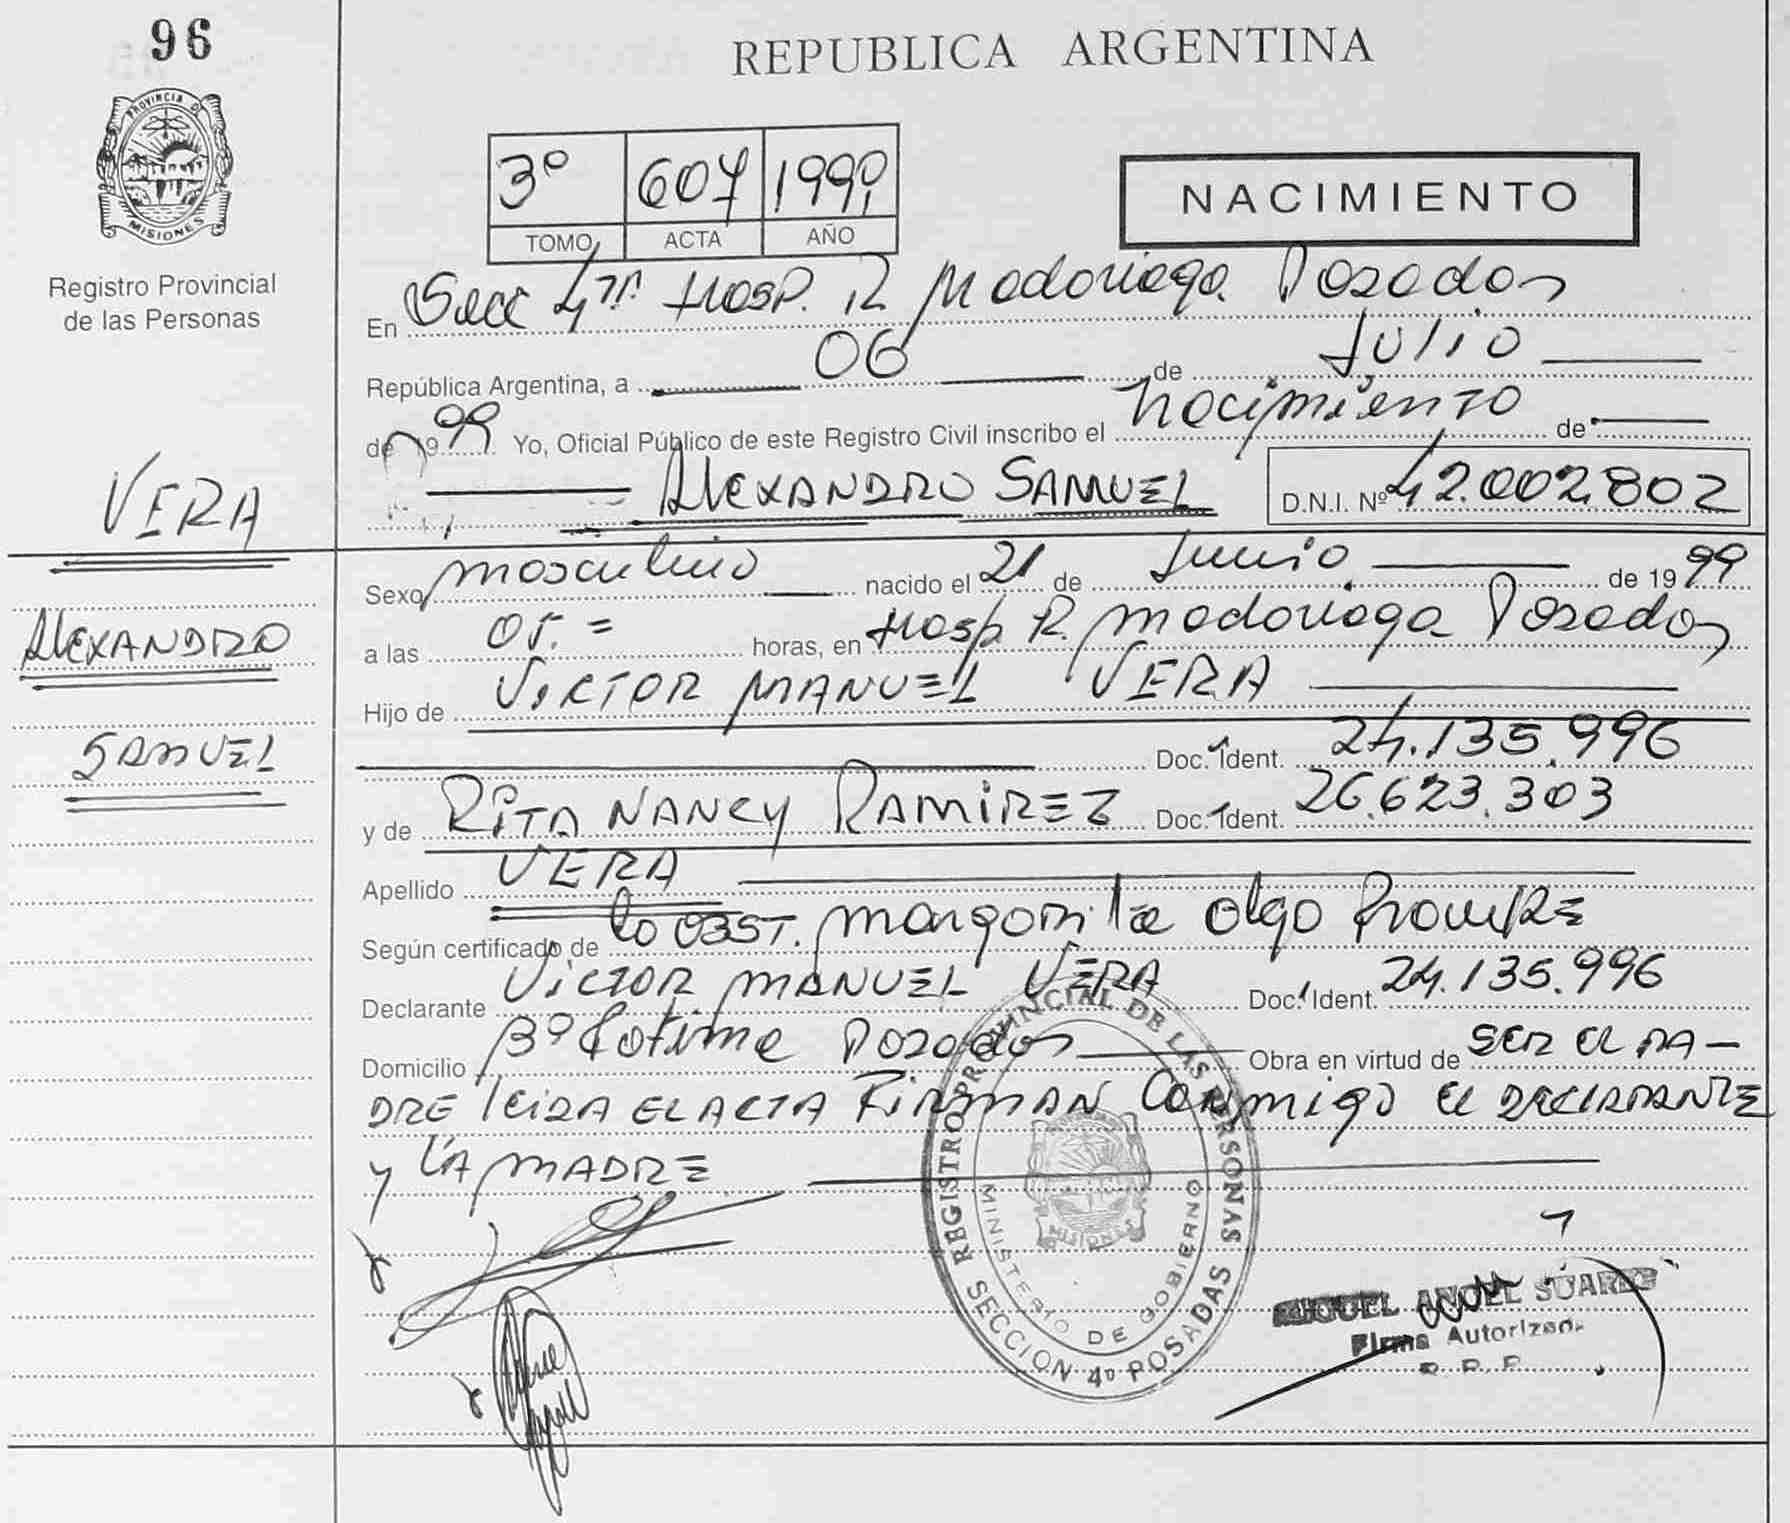 96
REPUBLICA ARGENTINA
PROVINCIA DE
MISIONES
Registro Provincial
de las Personas
3º 607 1999
TOMO ACTA AÑO
NACIMIENTO
En Secc 4ta. Hosp. R Madariaga Posadas
República Argentina, a 06 de Julio
de 1999 Yo, Oficial Público de este Registro Civil inscribo el nacimiento de
ALEXANDRO SAMUEL D.N.I. Nº 42.002.802
VERA
ALEXANDRO
SAMUEL
Sexo masculino nacido el 21 de Junio de 1999
a las 05.= horas, en Hosp. R. Madariaga Posadas
Hijo de VICTOR MANUEL VERA
Doc. Ident. 24.135.996
y de RITA NANCY RAMIREZ Doc. Ident. 26.623.303
Apellido VERA
Según certificado de la OBST. Margarita Olga
Declarante VICTOR MANUEL VERA Doc. Ident. 24.135.996
Domicilio Bº Fatima Posadas Obra en virtud de SER EL PA-
DRE leida EL ACTA FIRMAN Conmigo el DECLARANTE
y LA MADRE
REGISTRO PROVINCIAL DE LAS PERSONAS
MINISTERIO DE GOBIERNO
MISIONES
SECCION 4º POSADAS
MIGUEL ANGEL SUAREZ
Firma Autorizada
R. P. P.